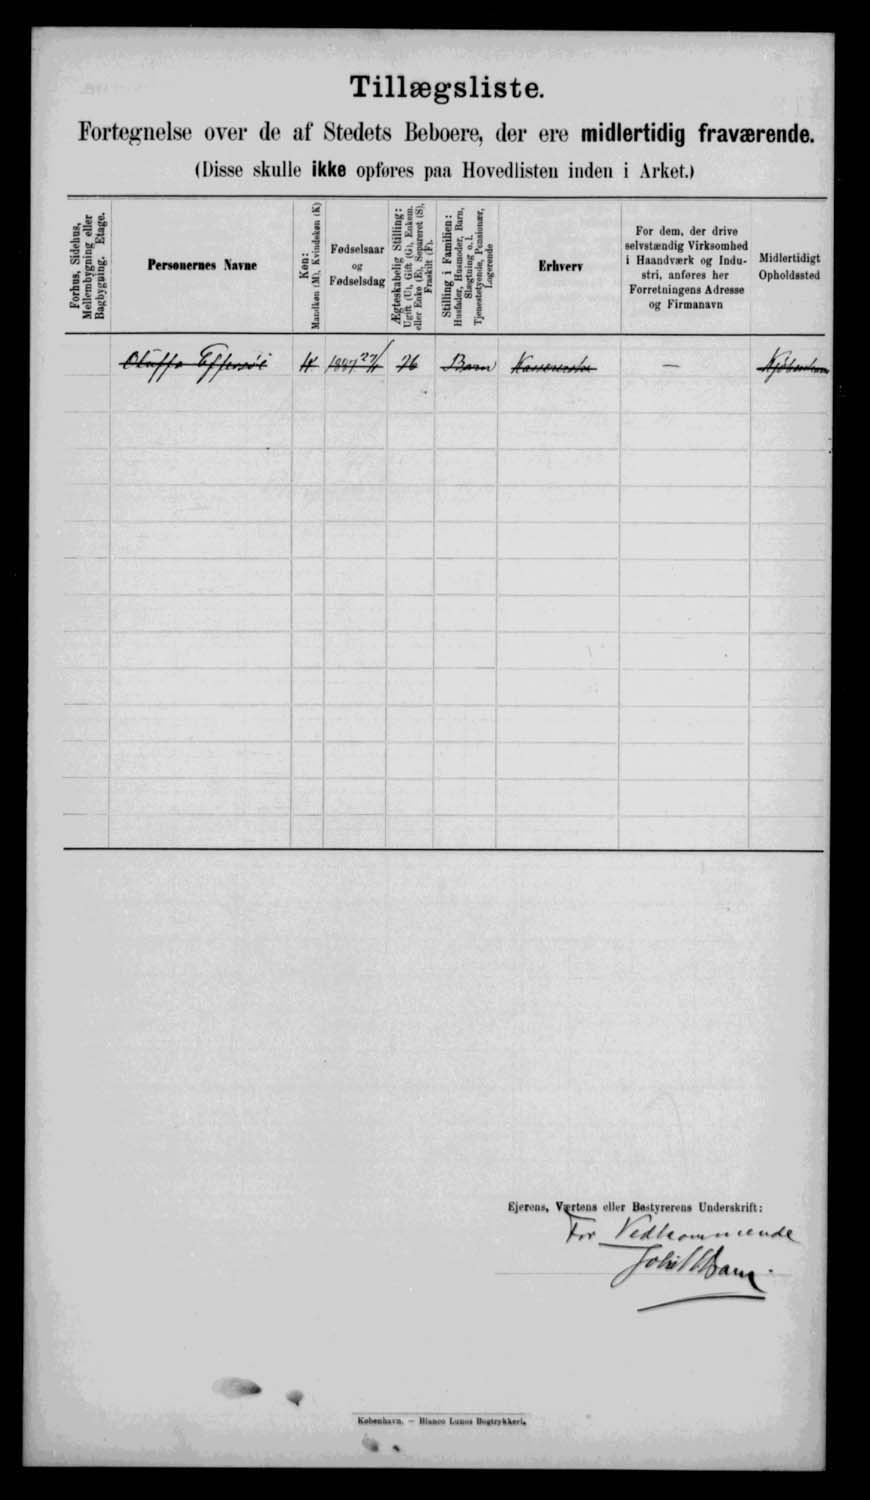 Tillægsliste.
Fortegnelse over de af Stedets Beboere, der ere midlertidig fraværende.
(Disse skulle ikke opføres paa Hovedlisten inden i Arket.)
Forhus, Sidehus,
Mellembygning eller
Bagbygning. Etage.
Personernes Navne
Køn:
Mandkøn (M), Kvindekøn (K)
Fødselsaar
og
Fødselsdag
Ægteskabelig Stilling:
Ugift (U), Gift (G), Enkem.
eller Enke (E), Separeret (S),
Fraskilt (F).
Stilling i Familien:
Husfader, Husmoder, Barn,
Slægtning o. l.
Tjenestetyende, Pensionær,
Logerende
Erhverv
For dem, der drive
selvstændig Virksomhed
i Haandværk og Indu-
stri, anføres her
Forretningens Adresse
og Firmanavn
Midlertidigt
Opholdssted
Barn —
Ejerens, Værtens eller Bestyrerens Underskrift:
For Vedkommende
København. — Bianco Lunos Bogtrykkeri.